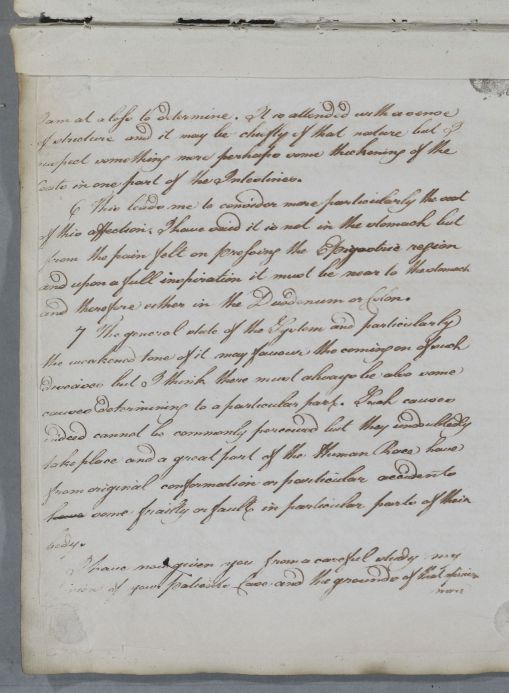 I am at a loss to determine. It is attended with a sense
of stricture and it may be chiefly of that nature but I
suspect something more perhaps some thickening of the
coats in one part of the Intestines.
6 This leads me to consider more particularly the seat
of this affection; I have said it is not in the stomach but
from the pain felt on pressing the Epigastric region
and upon a full inspiration it must be near to the stomach
and therefore either in the Duodenum or Colon.
7 The general state of the System and particularly
the weakened tone of it may favour the coming on of such
diseases but I think there must always be also some
causes determining to a particular part. Such causes
indeed cannot be commonly perceived but they undoubtedly
take place and a great part of the Human Race have
from original conformation or particular accidents
have some frailty or fault in particular parts of their
body.
I have now given you from a careful study my
view of your Patients Case and the grounds of that opinion
now